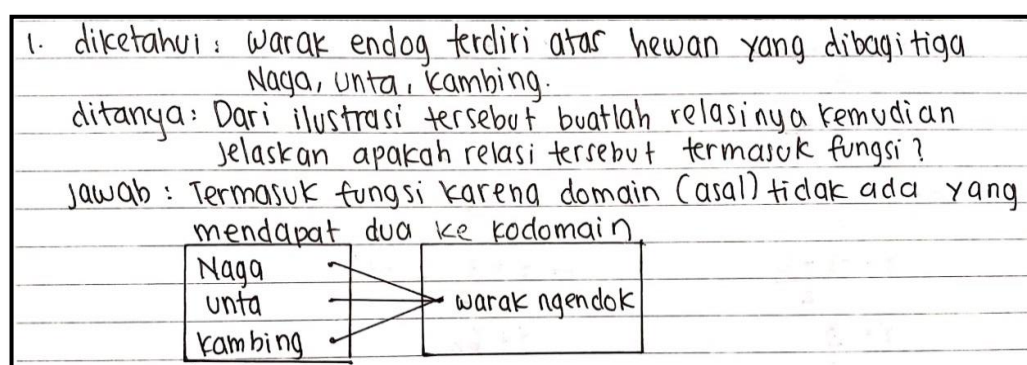 1. diketahui : warak endog terdiri atas hewan yang dibagi tiga
Naga, unta, kambing.
ditanya : Dari ilustrasi tersebut buatlah relasinya kemudian
jelaskan apakah relasi tersebut termasuk fungsi ?
jawab : Termasuk fungsi karena domain (asal) tidak ada yang
mendapat dua ke kodomain
Naga
unta
warak ngendok
kambing